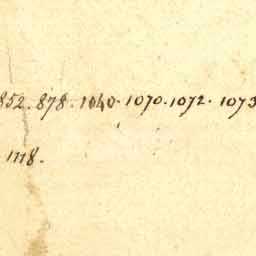 852. 878. 1040. 1070. 1072. 1073
1118.